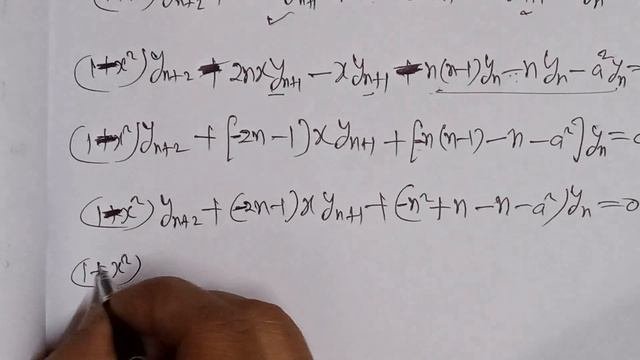 (1-x²)y_{n+2} - 2nxy_{n+1} - xy_{n+1} - n(n-1)y_n - ny_n - a²y_n =
(1-x²)y_{n+2} + [-2n-1)xy_{n+1} + [-n(n-1)-n-a²]y_n = 0
(1-x²)y_{n+2} + (-2n-1)xy_{n+1} + (-n²+n-n-a²)y_n = 0
(1+x²)